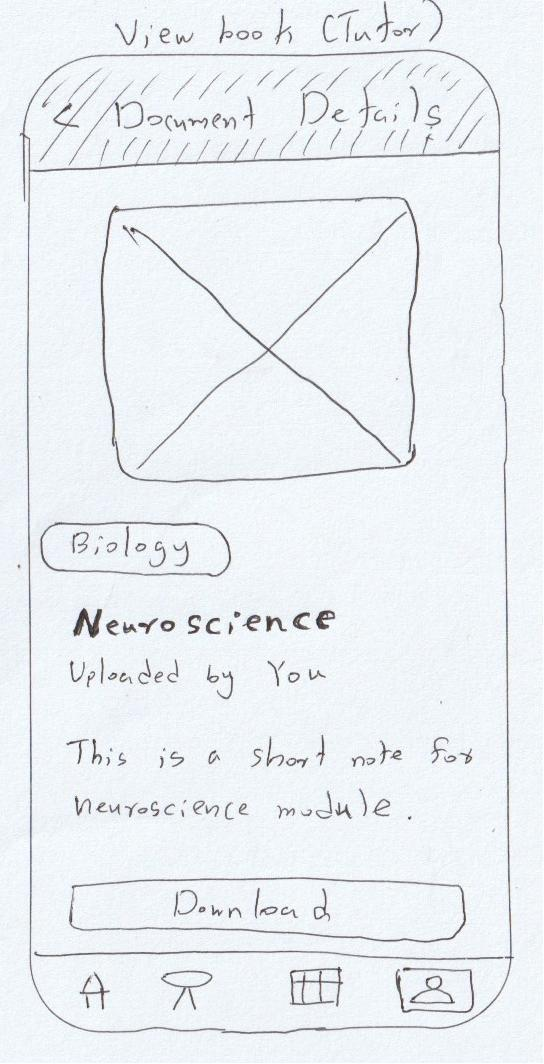 View book (Tutor)
< Document Details
Biology
Neuroscience
Uploaded by You
This is a short note for
neuroscience module.
Download